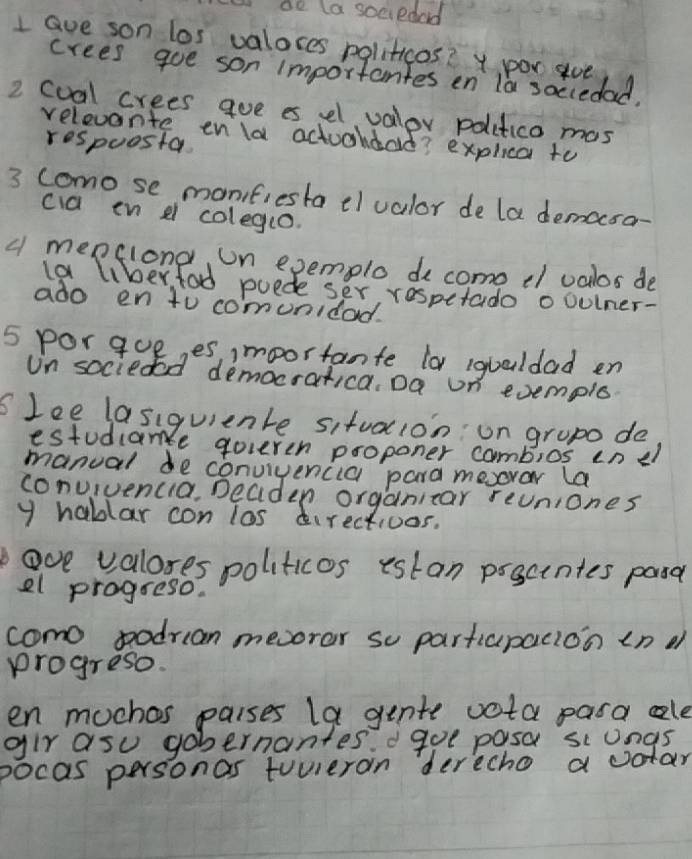 de la sociedad
1 Que son los valores politicos? y por que
crees que son importantes en la sociedad.
2 Cual crees que es el valor politico mas
relevante en la actualidad? explica tu
respuesta.
3 Como se manifiesta el valor de la democra-
cia en el colegio.
4 menciona un egemplo de como el valor de
la libertad puede ser respetado o vulner-
ado en tu comunidad.
5 por que es importante la igualdad en
un sociedad democratica. Da un egemplo.
6 Lee la siguiente situacion: un grupo de
estudiante quieren proponer cambios en el
manual de convivencia para mejorar la
convivencia. Deciden organizar reuniones
y hablar con los directivos.
Que valores politicos estan presentes para
el progreso.
como podrian mejorar su participación en el
progreso.
en muchos paises la gente vota para ele
gir a su gobernantes. d que pasa si unas
pocas personas tuvieran derecho a votar